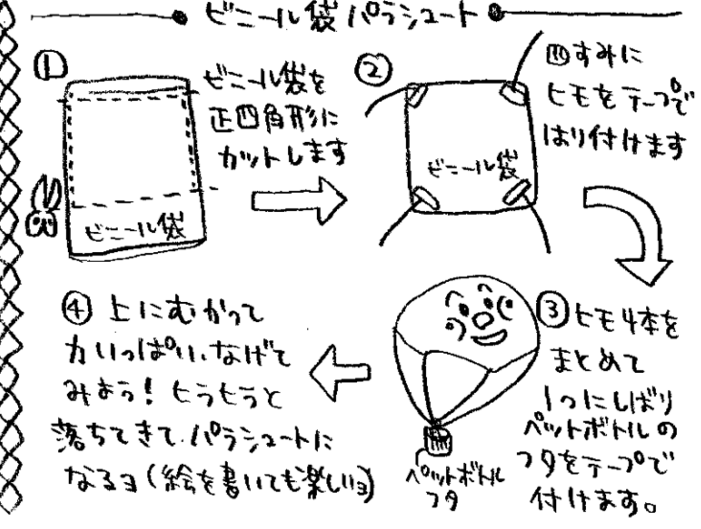 ビニール袋パラシュート
①
ビニール袋を
正四角形に
カットします
ビニール袋
②
四すみに
ヒモをテープで
はり付けます
ビニール袋
③ヒモ4本を
まとめて
1つにしばり
ペットボトルの
フタをテープで
付けます。
ペットボトル
フタ
④上にむかって
力いっぱい、なげて
みよう！ヒラヒラと
落ちてきてパラシュートに
なるヨ(絵を書いても楽しいヨ)